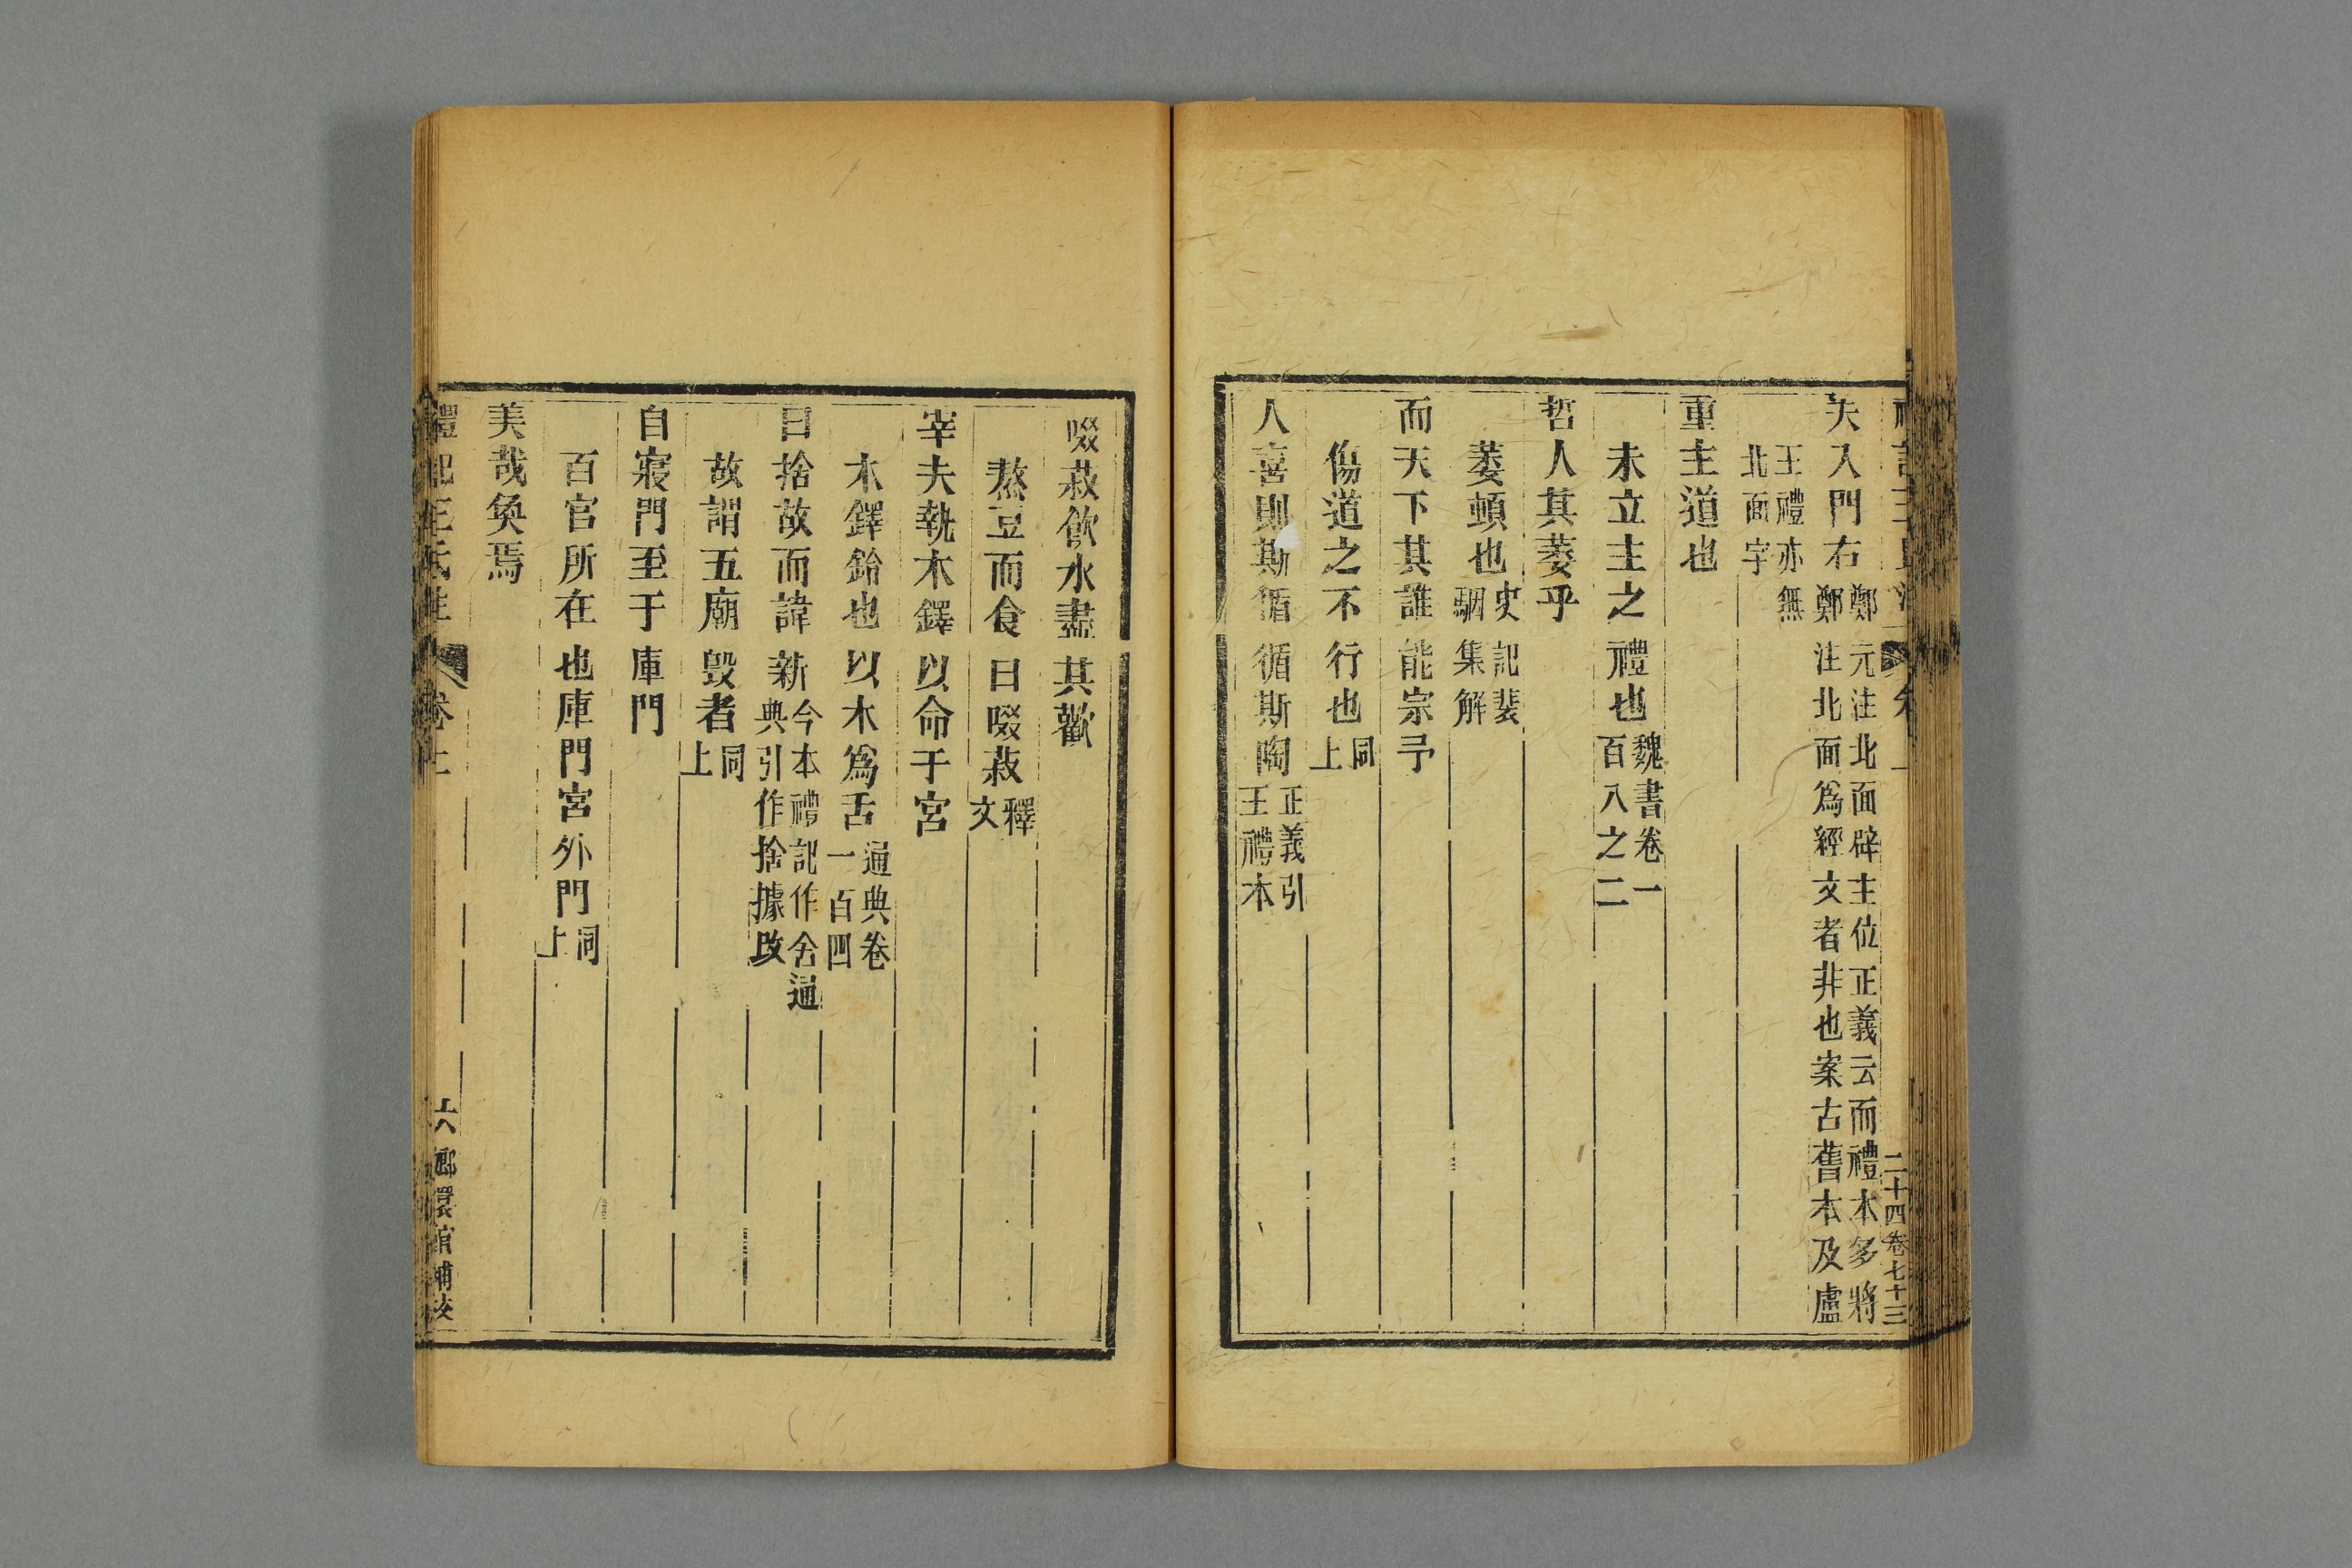 二十四 卷七十三
夫入門右鄭元注北面辟主位正義云而禮本多將
鄭注北面爲經文者非也案古舊本及盧
王禮亦無
北面字
重主道也
未立主之禮也魏書卷一
百八之二
哲人其萎乎
萎頓也史記裴
駰集解
而天下其誰能宗予
傷道之不行也同
上
人喜則斯循循斯陶正義引
王禮本
啜菽飲水盡其歡
熬豆而食曰啜菽釋
文
宰夫執木鐸以命于宮
木鐸鈴也以木爲舌通典卷
一百四
曰捨故而諱新今本禮記作舍通
典引作捨據改
故謂五廟毀者同
上
自寢門至于庫門
百官所在也庫門宮外門同
上
美哉奐焉
禮記王氏注 卷上 六 嫏嬛館補校